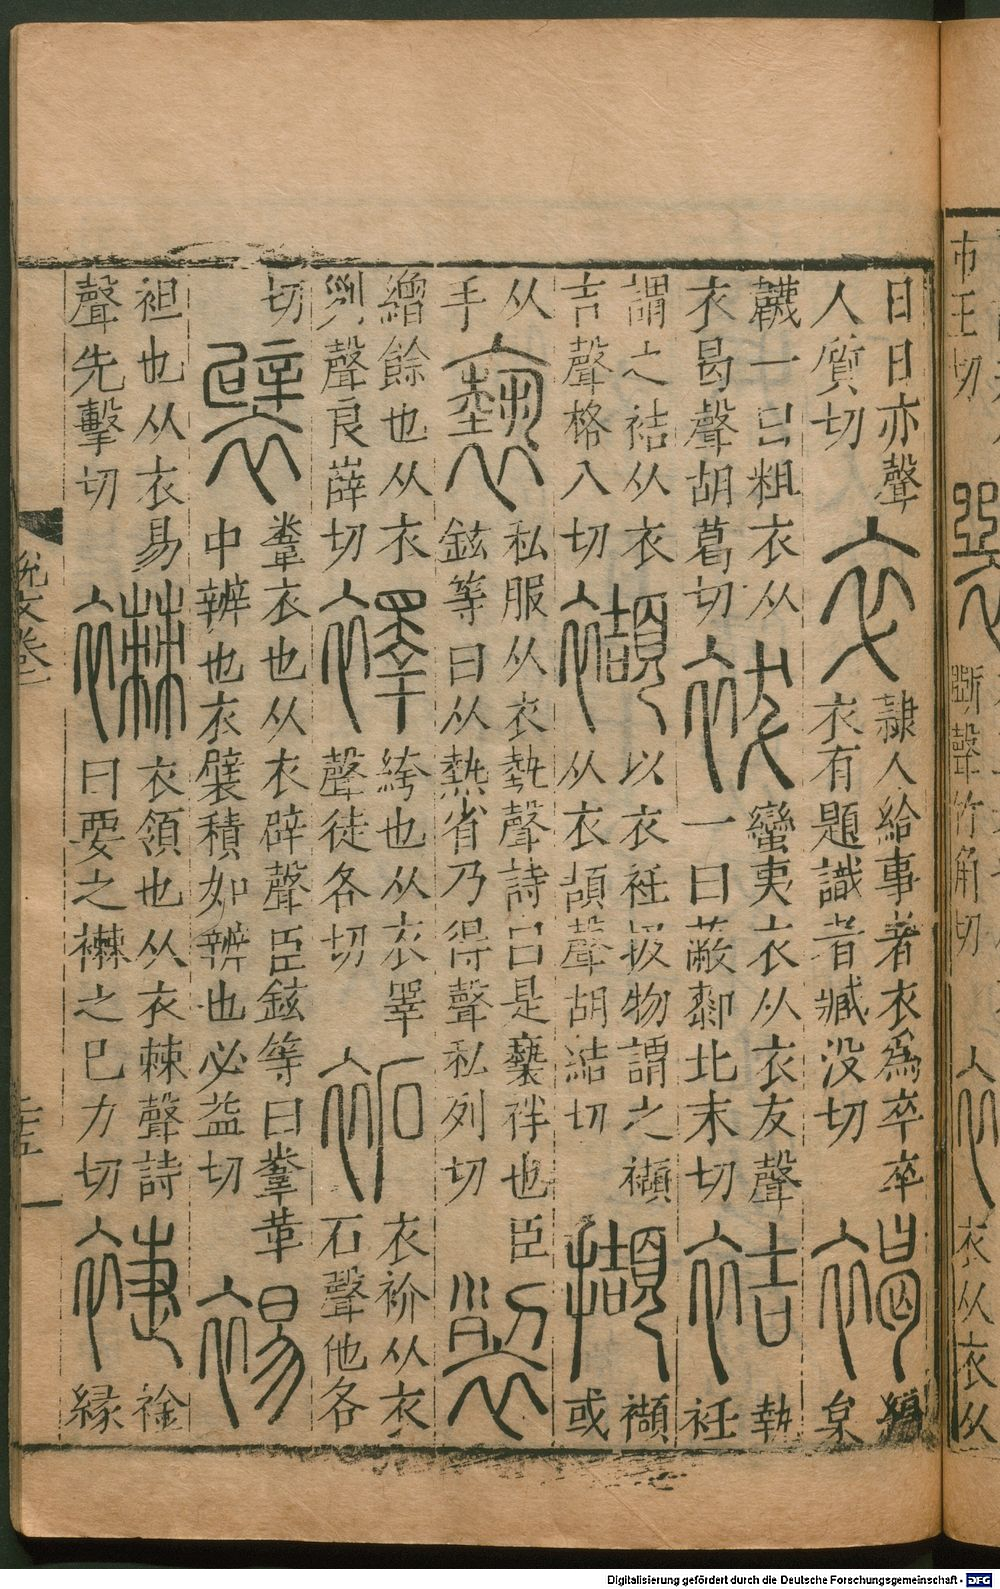 巿王切
斷聲竹角切
衣从衣从
日日亦聲人質切卒隸人給事者衣爲卒卒衣有題識者臧没切褐編枲
韤一曰粗衣从衣曷聲胡葛切袚蠻夷衣从衣犮聲一曰蔽厀北末切袺執衽
謂之袺从衣吉聲格八切襭以衣衽扱物謂之襭从衣頡聲胡結切擷襭或
从手褻私服从衣埶聲詩曰是褻袢也臣鉉等曰从熱省乃得聲私列切裂
繒餘也从衣𠛱聲良薛切襗絝也从衣睪聲徒各切袥衣衸从衣石聲他各
切襞韏衣也从衣辟聲臣鉉等曰韏革中辨也衣襞積如辨也必益切裼
袒也从衣易聲先擊切襋衣領也从衣棘聲詩曰要之襋之已力切䙎䘳緣
說文卷
二十五
Digitalisierung gefördert durch die Deutsche Forschungsgemeinschaft - DFG